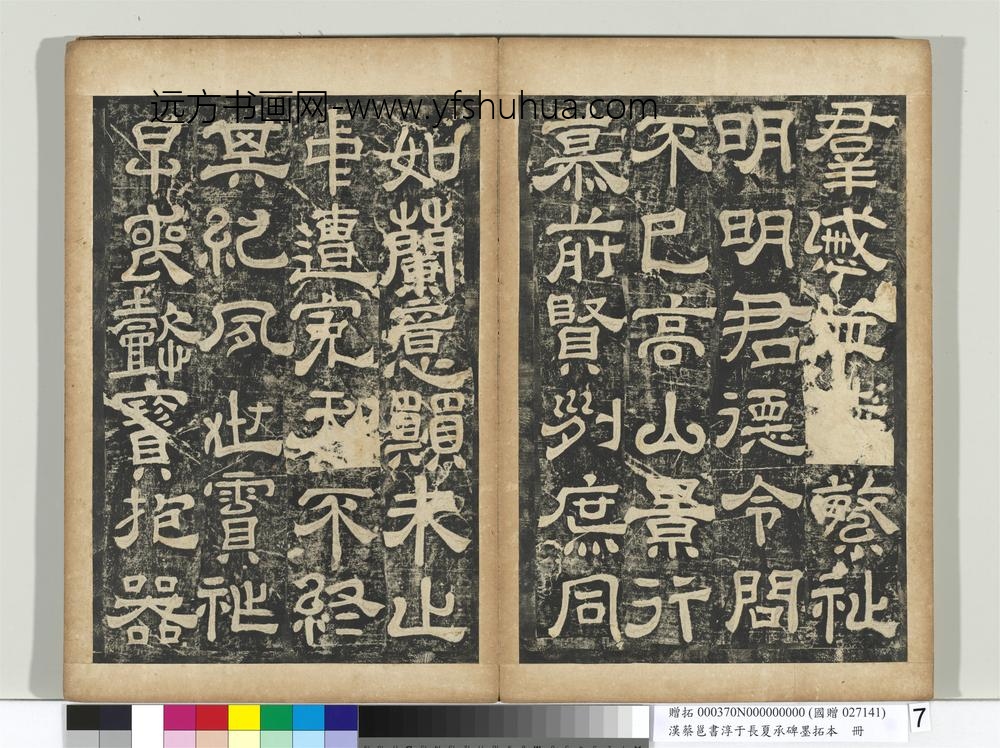 远方书画网-www.yfshuhua.com
羣慼並繁祉
明明君德令問
不已高山景行
慕前賢列庶同
如蘭意願未止
中遭冤夭不終
其紀夙世霣祚
早喪懿寶抱器
贈拓 000370N000000000 (國贈 027141)
漢蔡邕書淳于長夏承碑墨拓本 冊
7